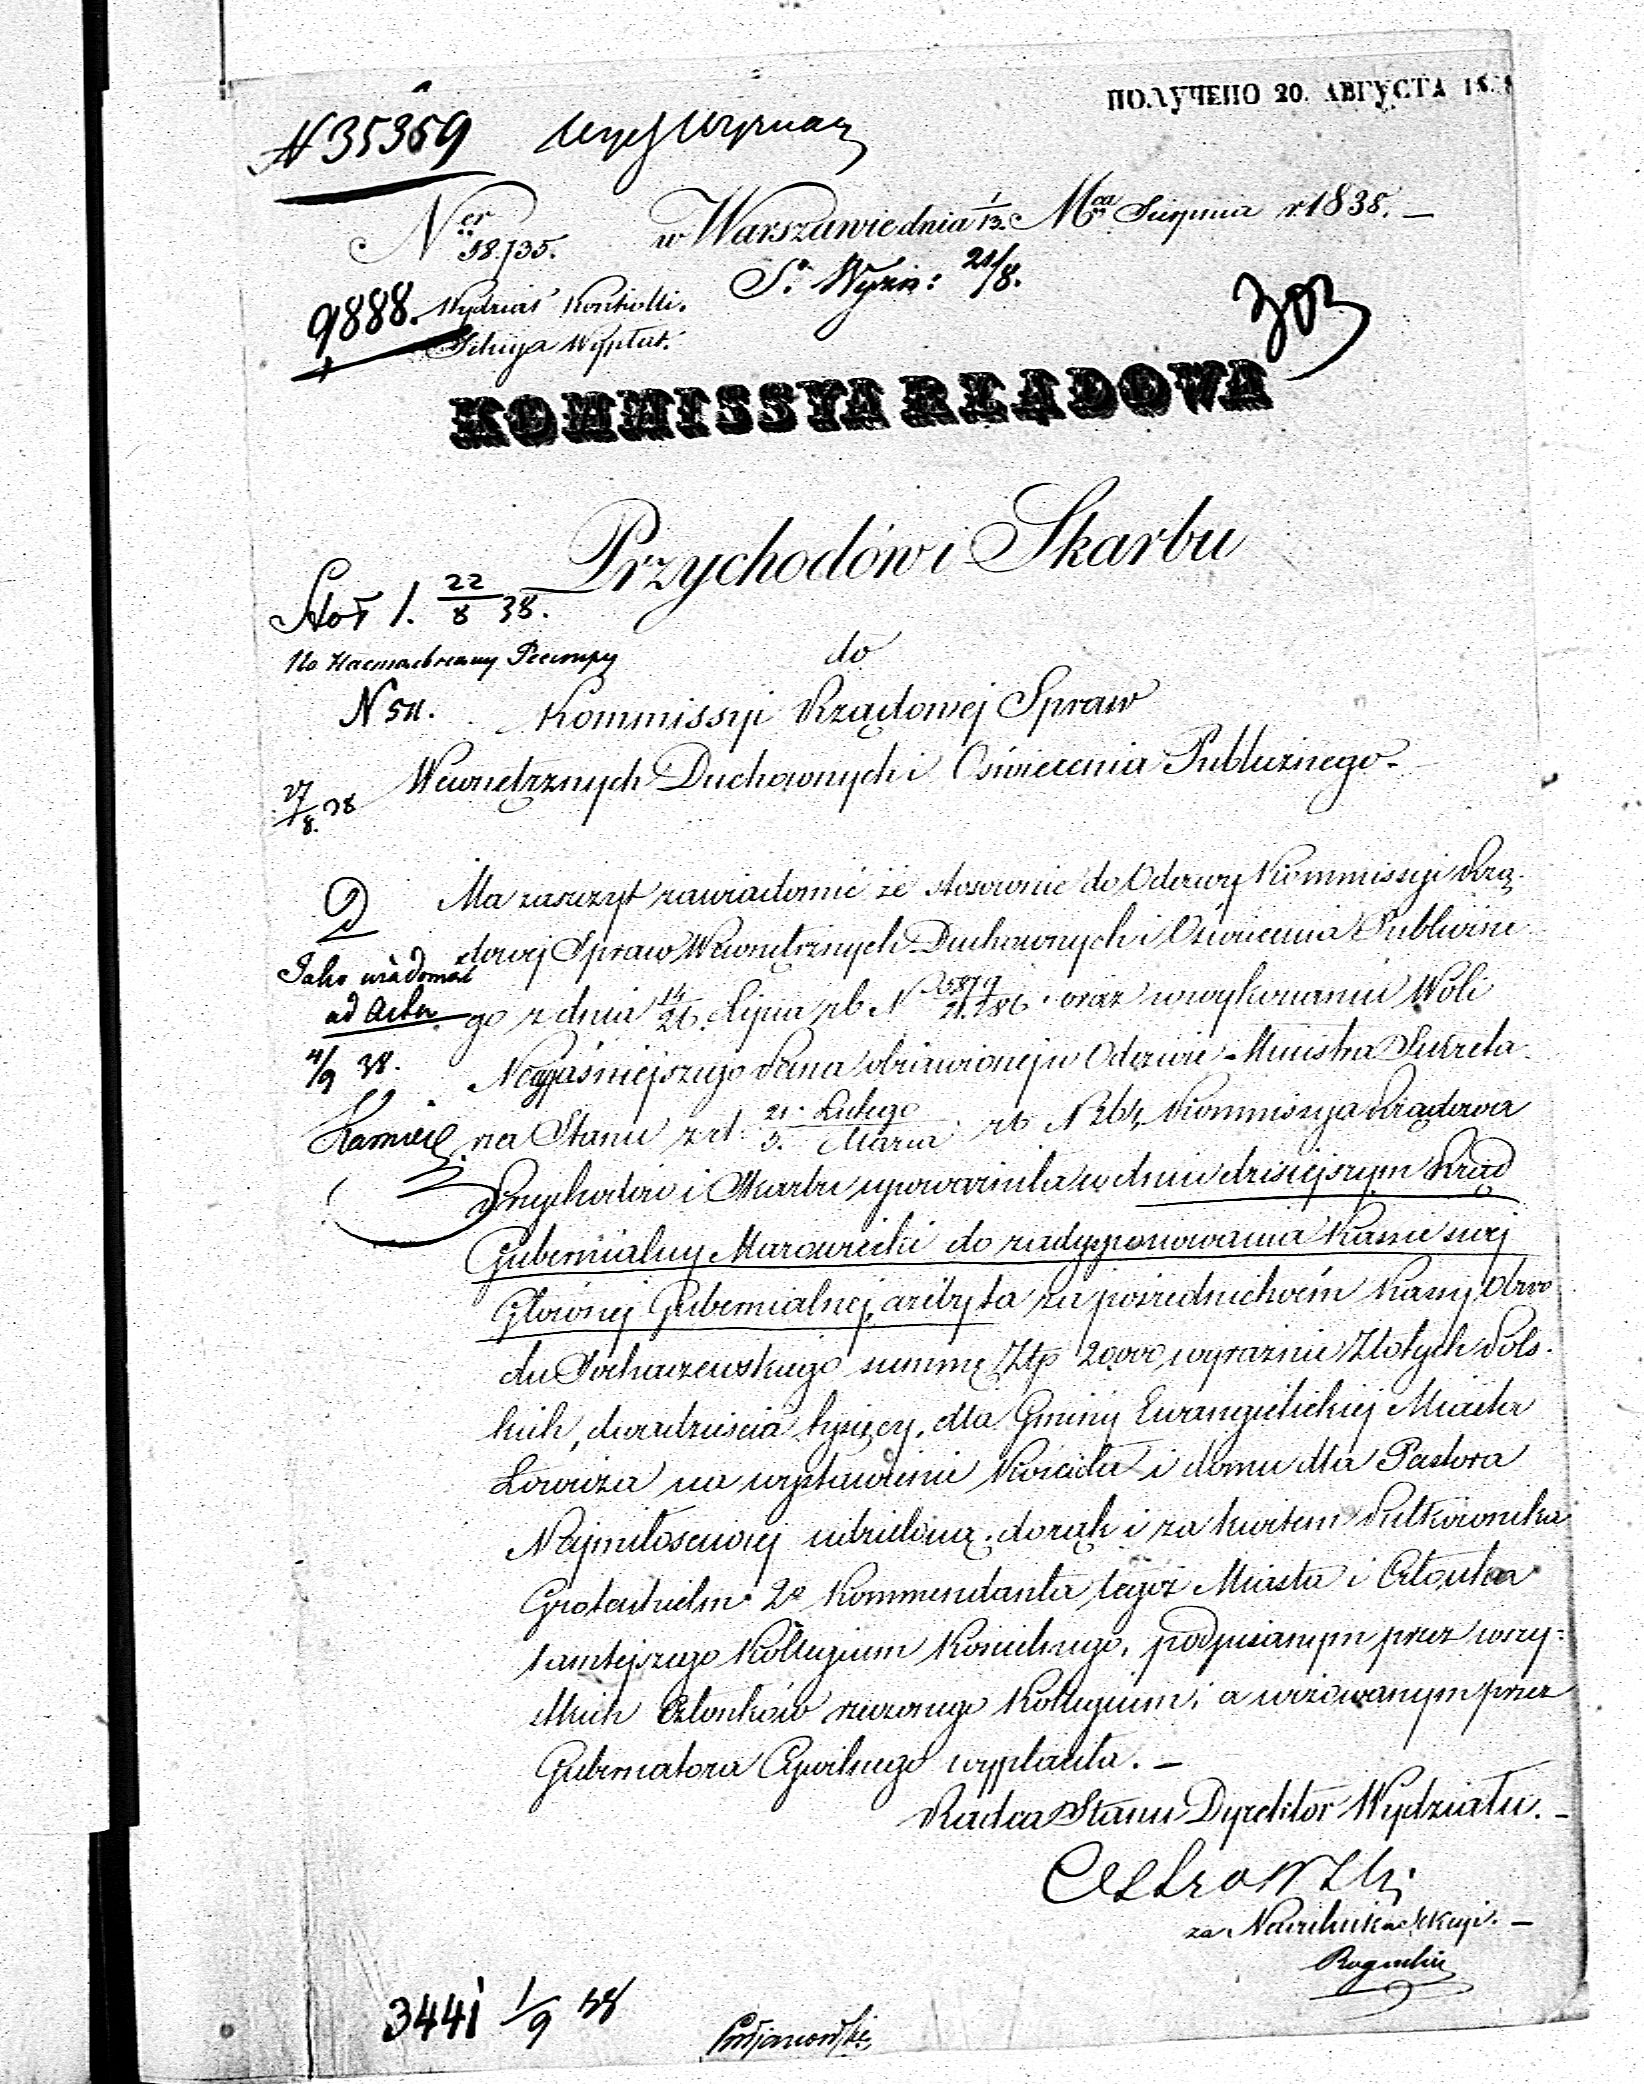 ПОЛУЧЕНО 20. АВГУСТА 18
N 35359
Ner 58135. w Warszawie dnia 1/13. Mca Sierpnia r 1838. —
9888. Wydział Kontrolli. 21/8.
Sekcya Wypłat.
KOMMISSYA RZĄDOWA
Przychodów i Skarbu
Stoł 1. 22/8 38.
do
N 511. Kommissyi Rządowej Spraw
Wewnętrznych Duchownych i Oświecenia Publicznego.
27/8. 38
Ma zaszczyt zawiadomić że stosownie do Odezwy Kommissyi Rzą-
dowej Spraw Wewnętrznych Duchownych i Oświecenia Publiczne
Jako wiadomość
ad acta
go z dnia 14/26. Lipca rb N oraz w wykonaniu Woli
4/9 38.
Najjaśniejszego Pana objawionej w Odezwie Ministra Sekreta
rza Stanu z d. 21. Lutego/5. Marca rb N Kommissya Rządowa
Przychodów i Skarbu upoważniła w dniu dzisiejszym Rząd
Gubernialny Mazowiecki do zadysponowania Kassie swej
Głównej Gubernialnej, ażeby ta za pośrednictwem Kassy Obwo
du Sochaczewskiego summę Złp 20,000 wyraźnie Złotych Pols-
kich, dwadzieścia tysięcy, dla Gminy Ewangielickiej Miasta
Łowicza na wystawienie Kościoła i domu dla Pastora
Najmiłościwiej udzieloną, do rąk i za kwitem Pułkownika
2o Kommendanta tegoż Miasta i Członka
tamtejszego Kollegium Kościelnego, podpisanym przez wszy-
stkich Członków rzeczonego Kollegium, a wizowanym przez
Gubernatora Cywilnego wypłaciła. —
Radca Stanu Dyrektor Wydziału. —
za Naczelnika Sekcyi. —
3441 1/9 38